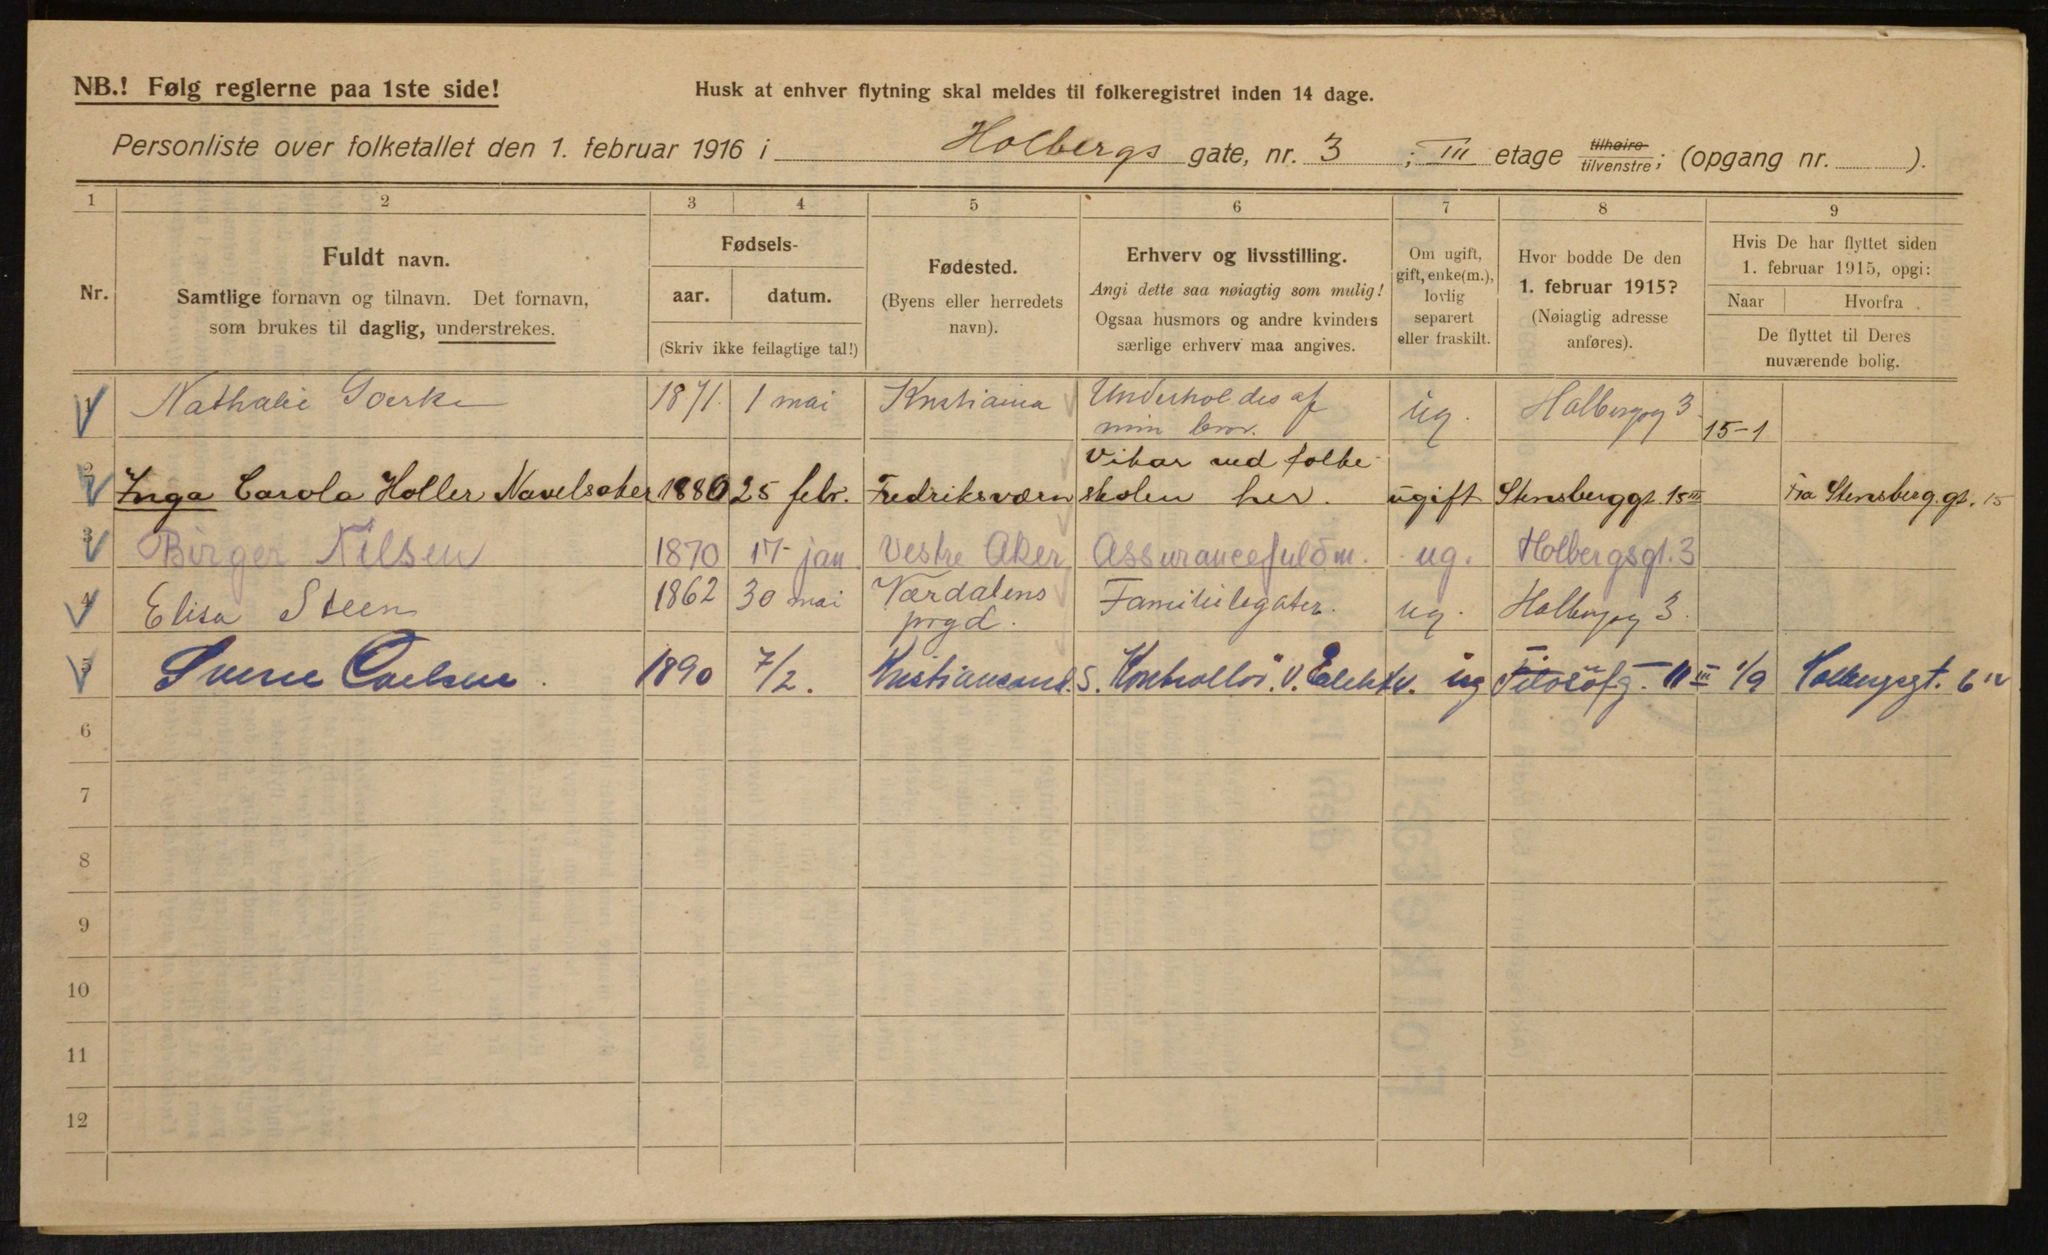 NB.! Følg reglerne paa 1ste side!
Husk at enhver flytning skal meldes til folkeregistret inden 14 dage.
Personliste over folketallet den 1. februar 1916 i Holbergs gate, nr. 3 ; III etage tilhøire tilvenstre; (opgang nr. ).
1 2 3 4 5 6 7 8 9
Nr.
Fuldt navn.
Samtlige fornavn og tilnavn. Det fornavn,
som brukes til daglig, understrekes.
Fødsels-
aar. datum.
(Skriv ikke feilagtige tal!)
Fødested.
(Byens eller herredets
navn).
Erhverv og livsstilling.
Angi dette saa nøiagtig som mulig!
Ogsaa husmors og andre kvinders
særlige erhverv maa angives.
Om ugift,
gift, enke(m.),
lovlig
separert
eller fraskilt.
Hvor bodde De den
1. februar 1915?
(Nøiagtig adresse
anføres).
Hvis De har flyttet siden
1. februar 1915, opgi:
Naar Hvorfra
De flyttet til Deres
nuværende bolig.
1 Nathalie Goerke 1871. 1 mai Kristiania Underholdes af
min bror. ug. Holbergsg 3. 15-1
2 Inga Carola Holler Navelsaker 1880 25 febr. Fredriksværn Vikar ved folke-
skolen her. ugift Stensberggt. 15 III Fra Stensberg.gt. 15
3 Birger Nilsen 1870 17 jan Vestre Aker Assurancefuldm. ug. Holbergsgt. 3
4 Elisa Steen 1862 30 mai Værdalens
prgd. Familielegater. ug. Holbergsg 3.
5 Sverre Carlsen. 1890 7/2. Kristiansand. S. Kontrollør. v. Elektv. ug Filosofg. 11 III 1/9 Holbergsgt. 6 IV
6
7
8
9
10
11
12